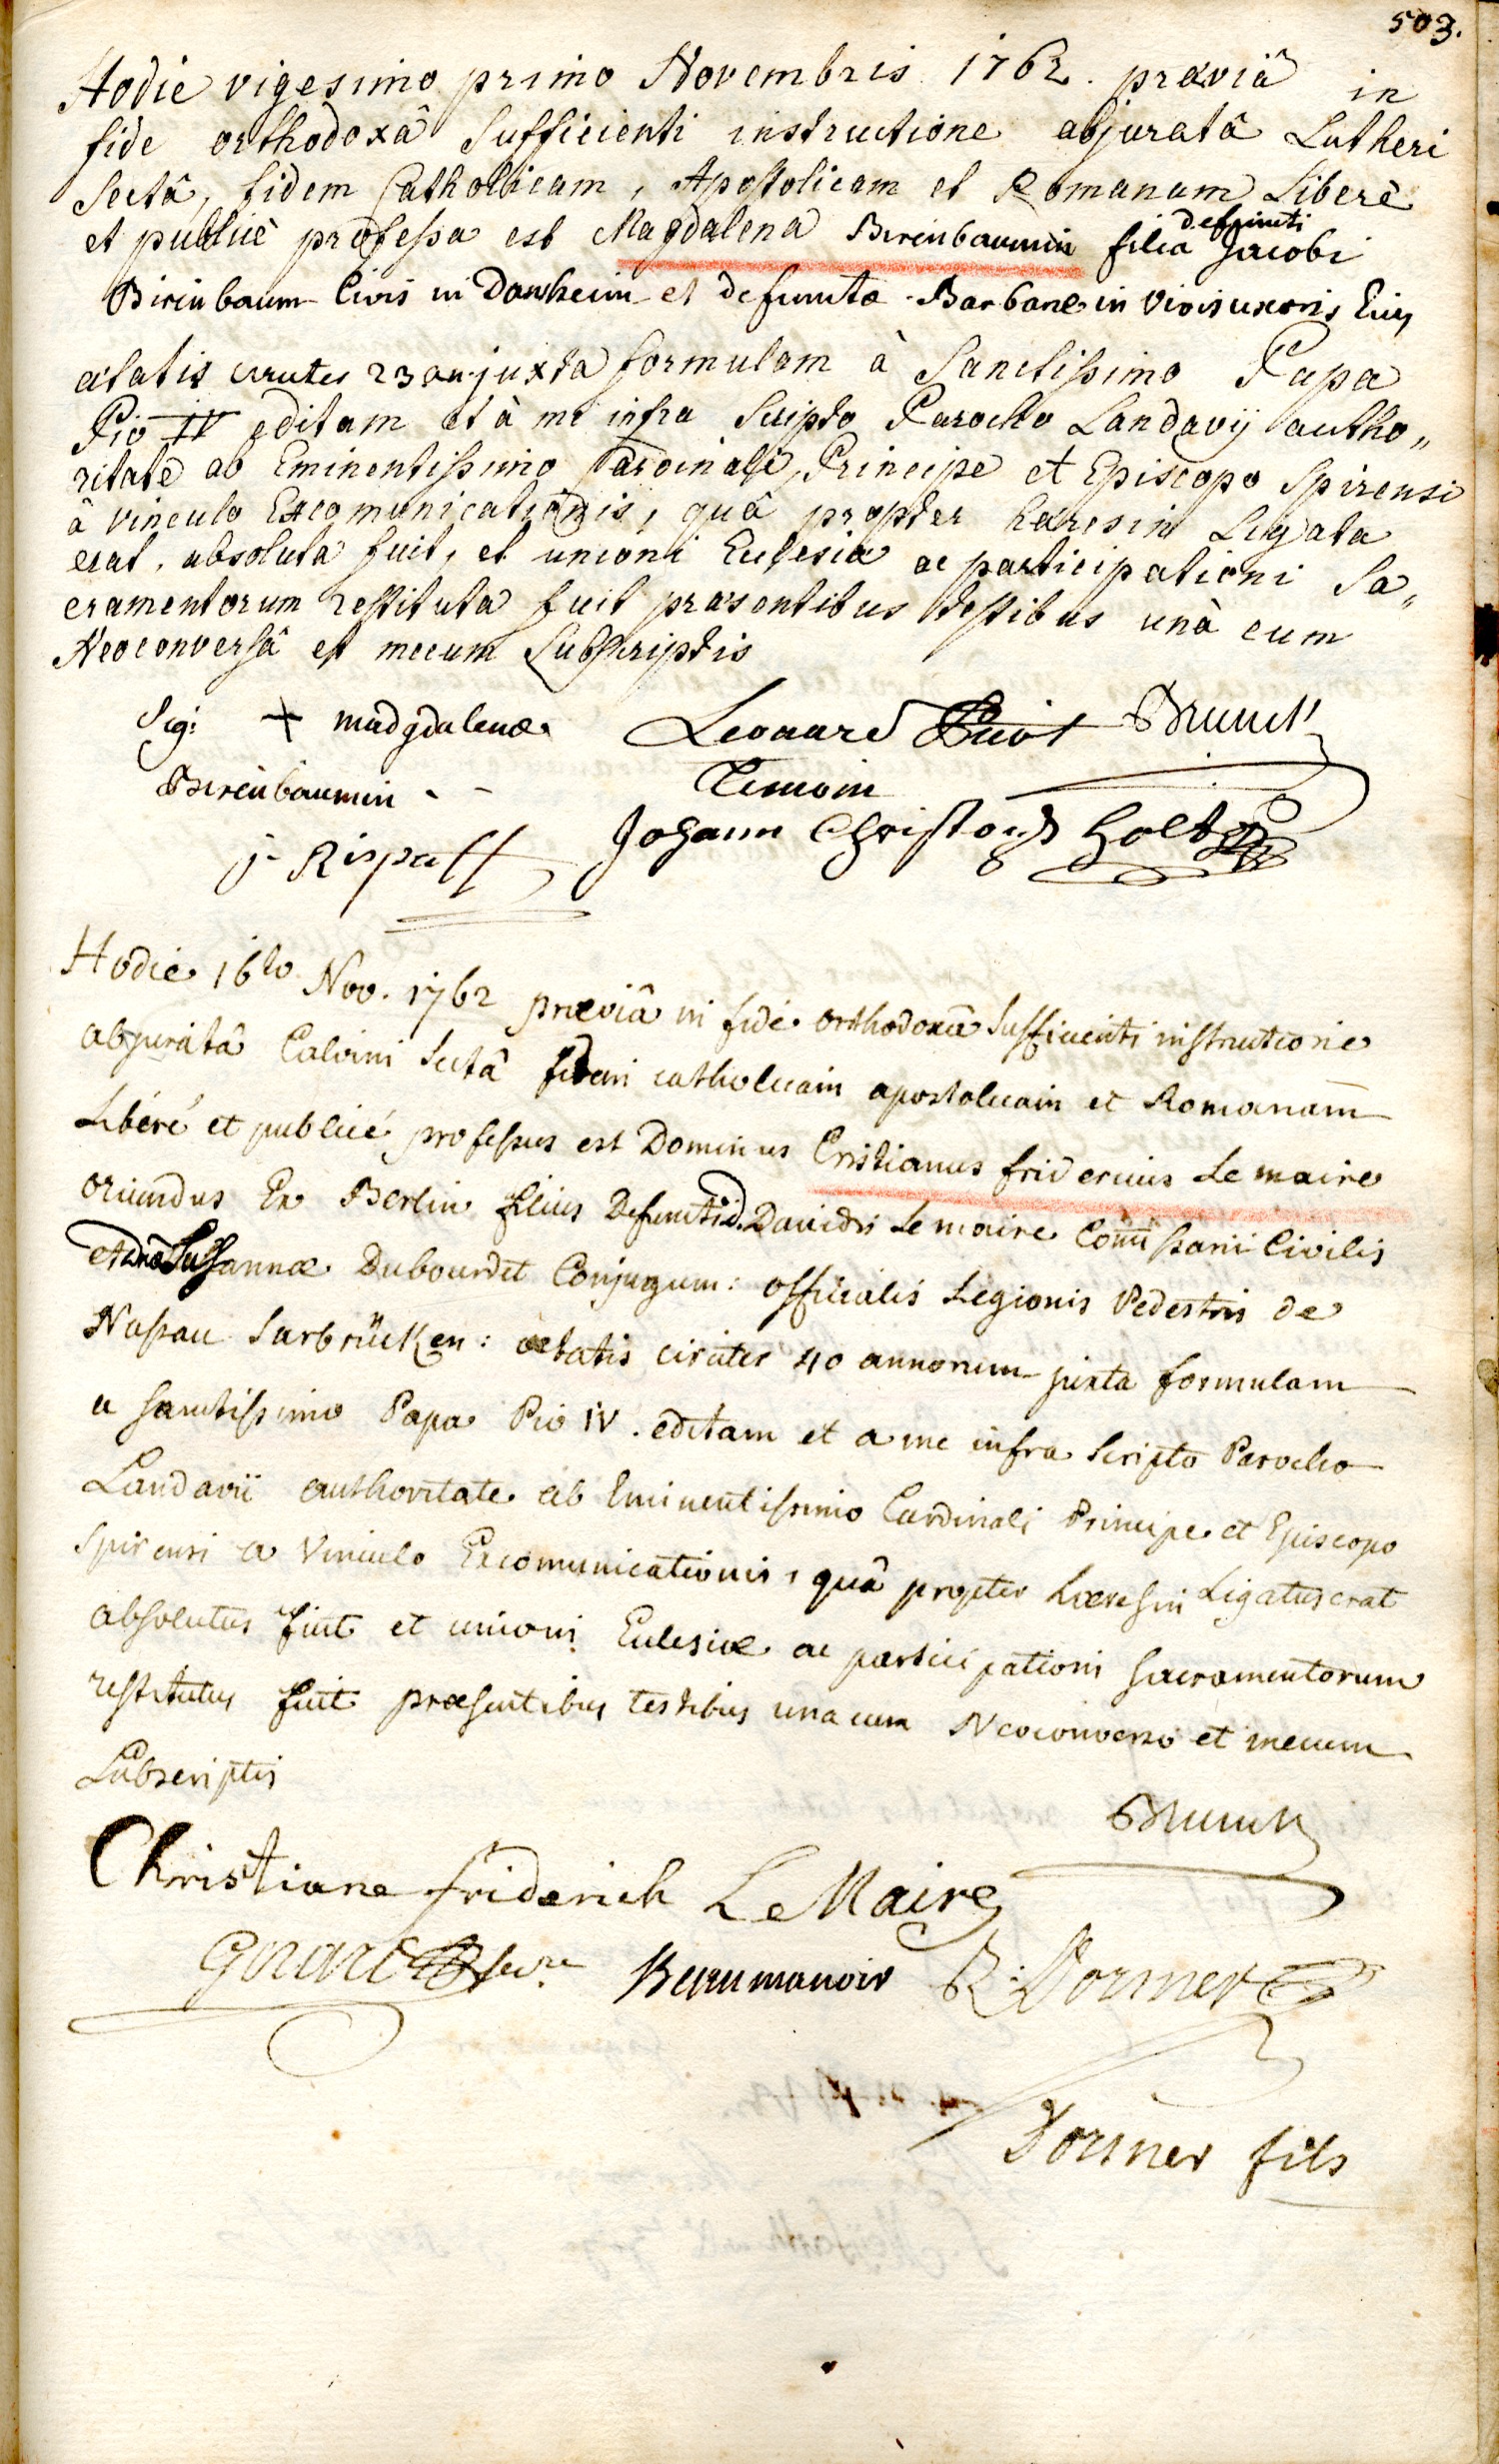 503.
Hodie vigesimo primo Novembris 1762. praeviâ in
fide orthodoxâ Sufficienti instructione abjuratâ Lutheri
Sectâ, fidem Catholicam, Apostolicam et Romanam Liberè
et publicè professa est Magdalena Birenbaumin filia defuncti Jacobi
Birenbaum Civis in Damheim et defunctae Barbarae in vivis uxoris Ejus
aetatis circiter 23 an. juxta formulam à Sanctissimo Papa
Pio IV editam et à me infra Scripto Parocho Landavij autho„
ritate ab Eminentissimo Cardinali, Principe et Episcopo Spirensi
â vinculo Excomunicationis, quâ propter haresin Ligata
erat, absoluta fuit, et unioni Ecclesia ac participationi Sa„
cramentorum restituta fuit praesentibus testibus unà cum
Neoconversâ et mecum Subscriptis
Sig: + madgdalenae Leonard Temoin Brunck
Birenbaumin
Johann Christoph
Hodie 16to Nov. 1762 praeviâ in fide orthodoxâ Sufficienti instructione
abjuratâ Calvini Sectâ fidem catholicam apostolicam et Romanam
Libéré et publicé professus est Dominus Cristianus fridericus Le maire
oriundus Ex Berlin filius Defuncti d. Davidis Le maire Comissarii Civilis
et dnae Sussannae Dubourdet Conjugum: officialis Legionis Pedestris de
Nassau Sarbrücken: aetatis circiter 40 annorum juxta formulam
a sanctissimo Papa Pio IV. editam et a me infra Scripto Parocho
Landavii authoritate ab Eminentissimo Cardinali Principe et Episcopo
Spirensi a Vinculo Excomunicationis, quâ propter haeresin Ligatus erat
absolutus fuit et unioni Ecclesiae ac participationi sacramentorum
restitutus fuit praesentibus testibus una cum Neoconverso et mecum
Subscriptis
Brunck
Christiane friderich Le Maire
Beaumanoir R: Dormer
Dormer fils